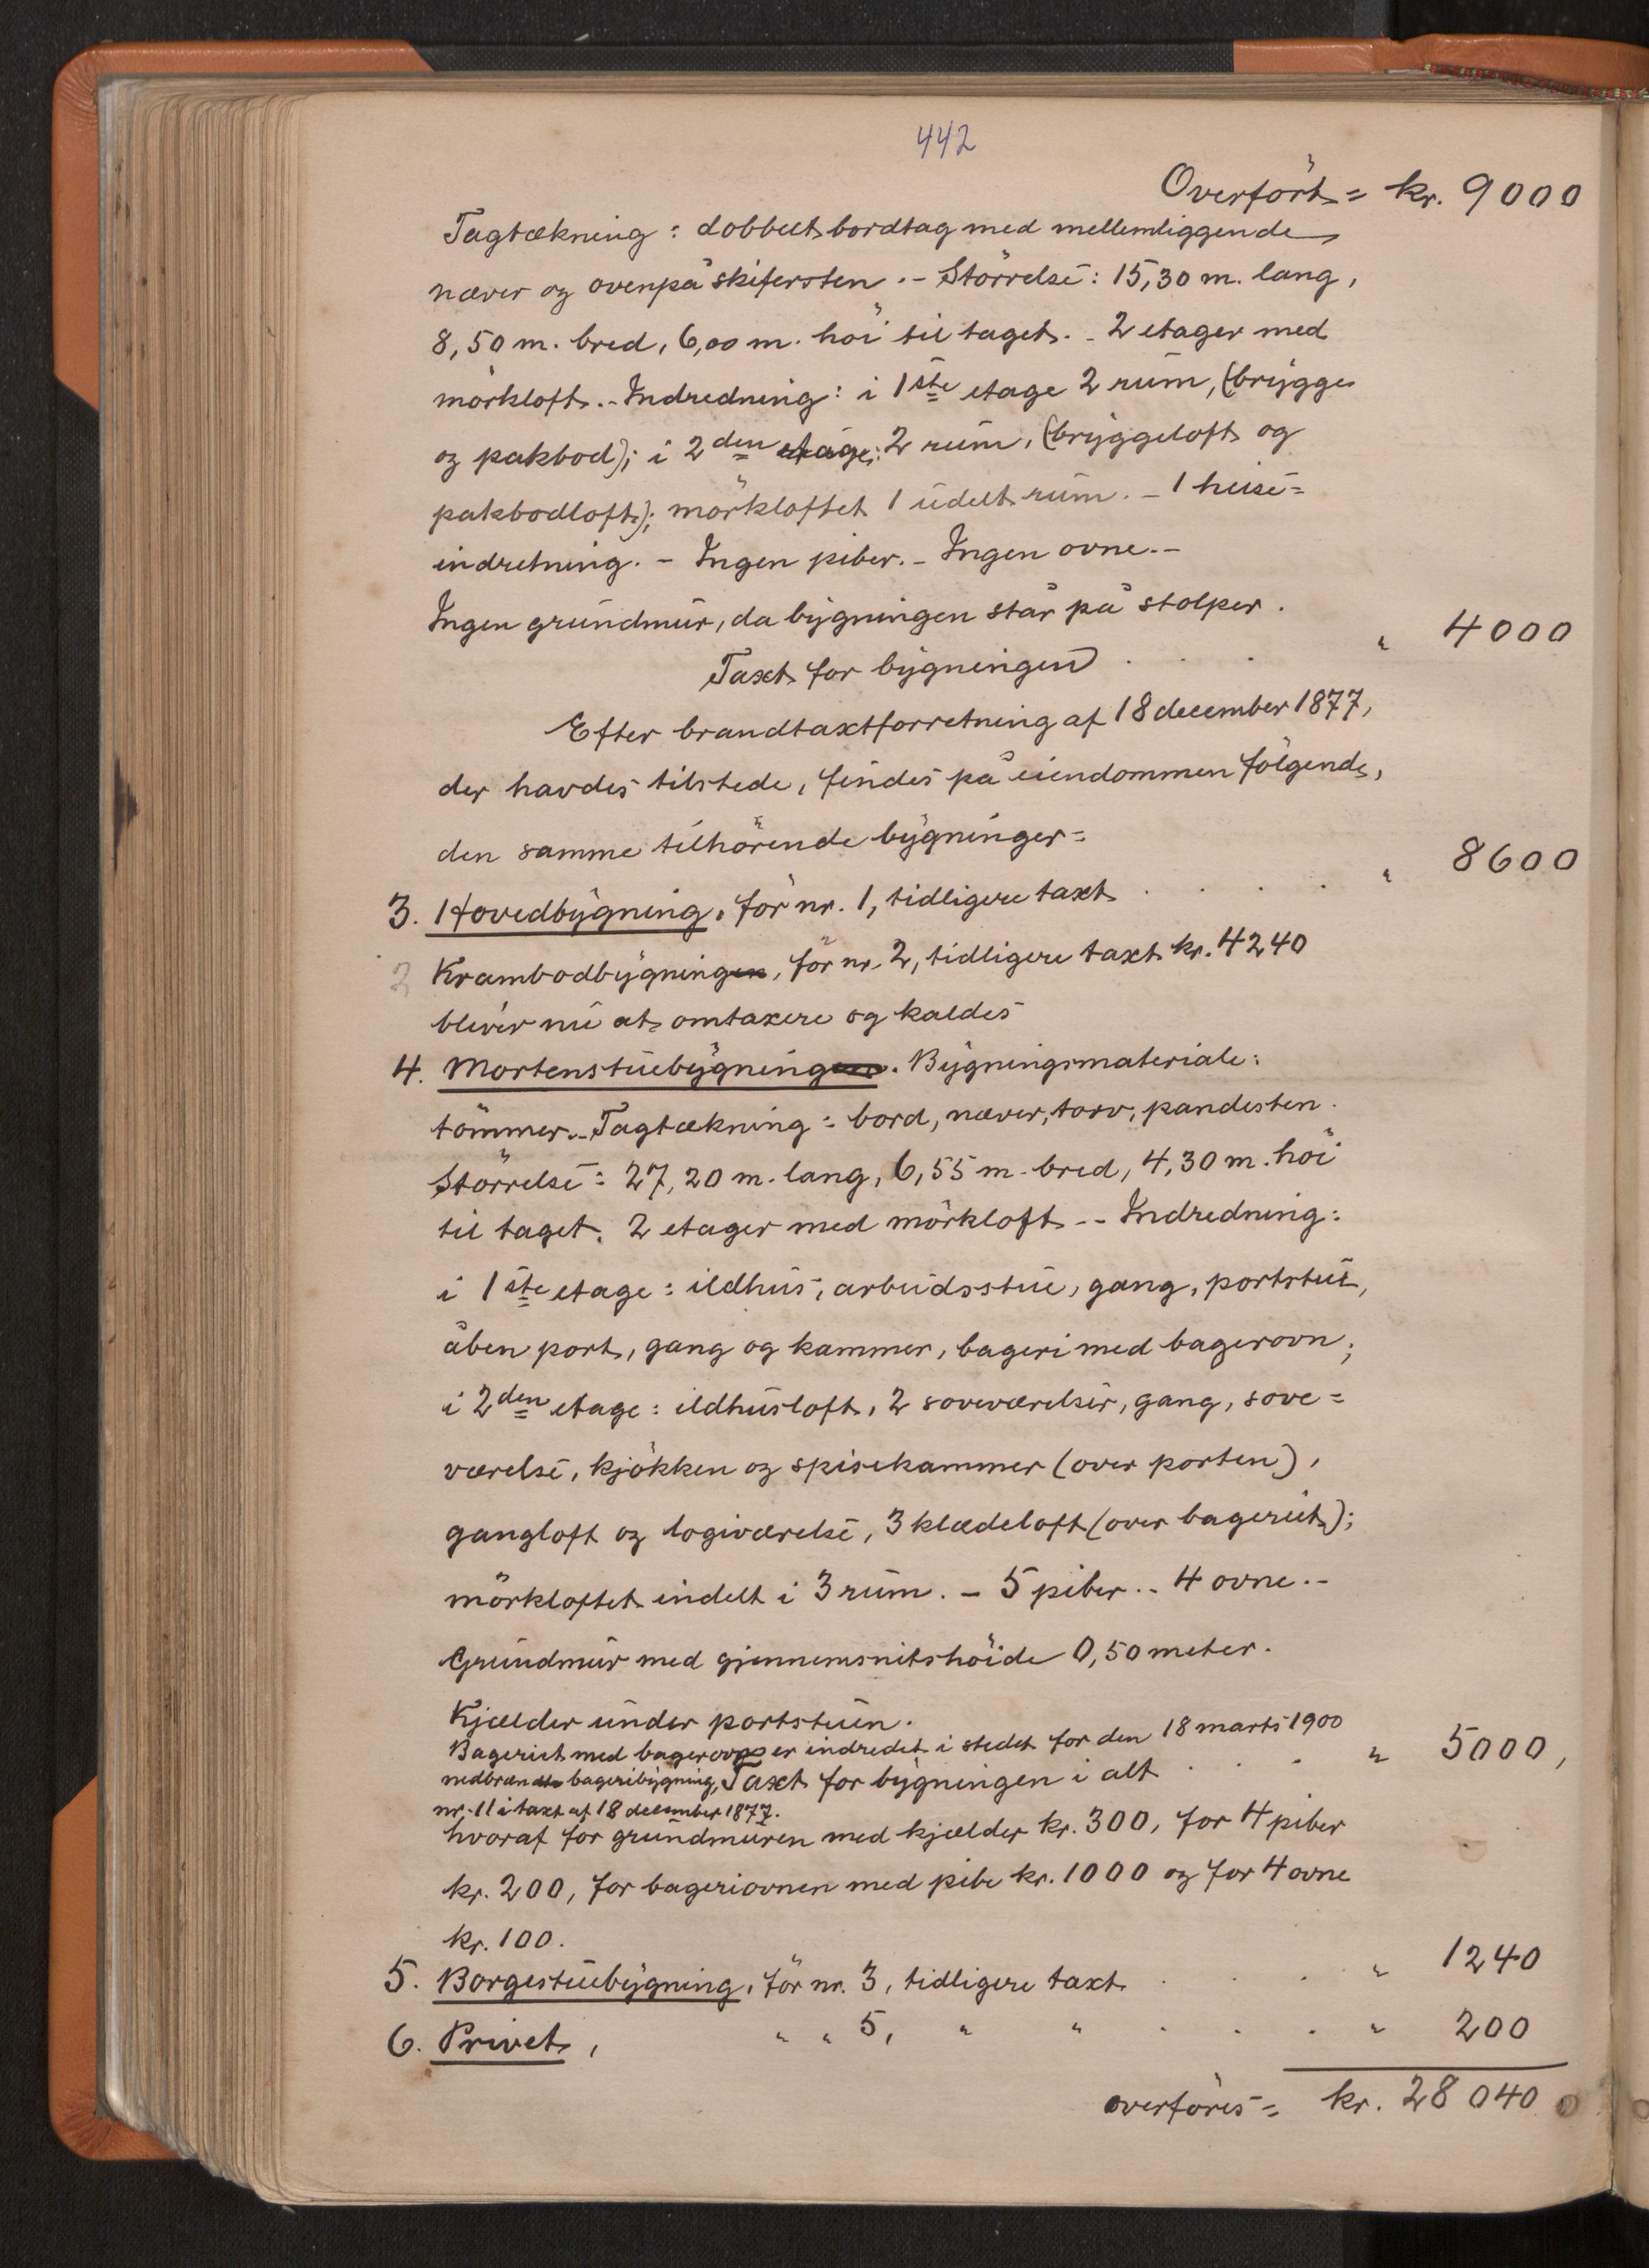 442
Overført = kr. 9000
Tagtækning: dobbelt bordtag med mellemliggende
næver og ovenpå skifersten. - Størrelse: 15,30 m. lang,
8,50 m. bred, 6,00 m. høi til taget. - 2 etager med
mørkloft. - Indredning: i 1ste etage 2 rum, (brygge
og pakbod); i 2den etage: 2 rum, (bryggeloft og
pakbodloft); mørkloftet 1 udelt rum. - 1 heise=
indretning. - Ingen piber. - Ingen ovne. -
Ingen grundmur, da bygningen står på stolper.
Taxt for bygningen . . . " 4000
Efter brandtaxtforretning af 18 december 1877,
der havdes tilstede, findes på eiendommen følgende,
den samme tilhørende bygninger =
3. Hovedbygning, før nr. 1, tidligere taxt . . . . " 8600
2 Krambodbygningen, før nr. 2, tidligere taxt kr. 4240
bliver nu at omtaxere og kaldes
4. Mortenstuebygningen. Bygningsmateriale:
tømmer. - Tagtækning: bord, næver, torv, pandesten.
Størrelse: 27,20 m. lang, 6,55 m. bred, 4,30 m. høi
til taget. 2 etager med mørkloft. - Indredning:
i 1ste etage: ildhus, arbeidsstue, gang, portstue,
åben port, gang og kammer, bageri med bagerovn;
i 2den etage: ildhusloft, 2 soveværelser, gang, sove=
værelse, kjøkken og spisekammer (over porten),
gangloft og logiværelse, 3 klædeloft (over bageriet);
mørkloftet indelt i 3 rum. - 5 piber. - 4 ovne. -
Grundmur med gjennemsnitshøide 0,50 meter.
Kjælder under portstuen.
Bageriet med bagerovn er indredet i stedet for den 18 marts 1900
nedbrændte bageribygning, Taxt for bygningen i alt . . . " 5000,
nr. 11 i taxt af 18 december 1877.
hvoraf for grundmuren med kjælder kr. 300, for 4 piber
kr. 200, for bageriovnen med pibe kr. 1000 og for 4 ovne
kr. 100.
5. Borgestuebygning, før nr. 3, tidligere taxt . . . " 1240
6. Privet, " " 5, " " . . . " 200
overføres = kr. 28 040